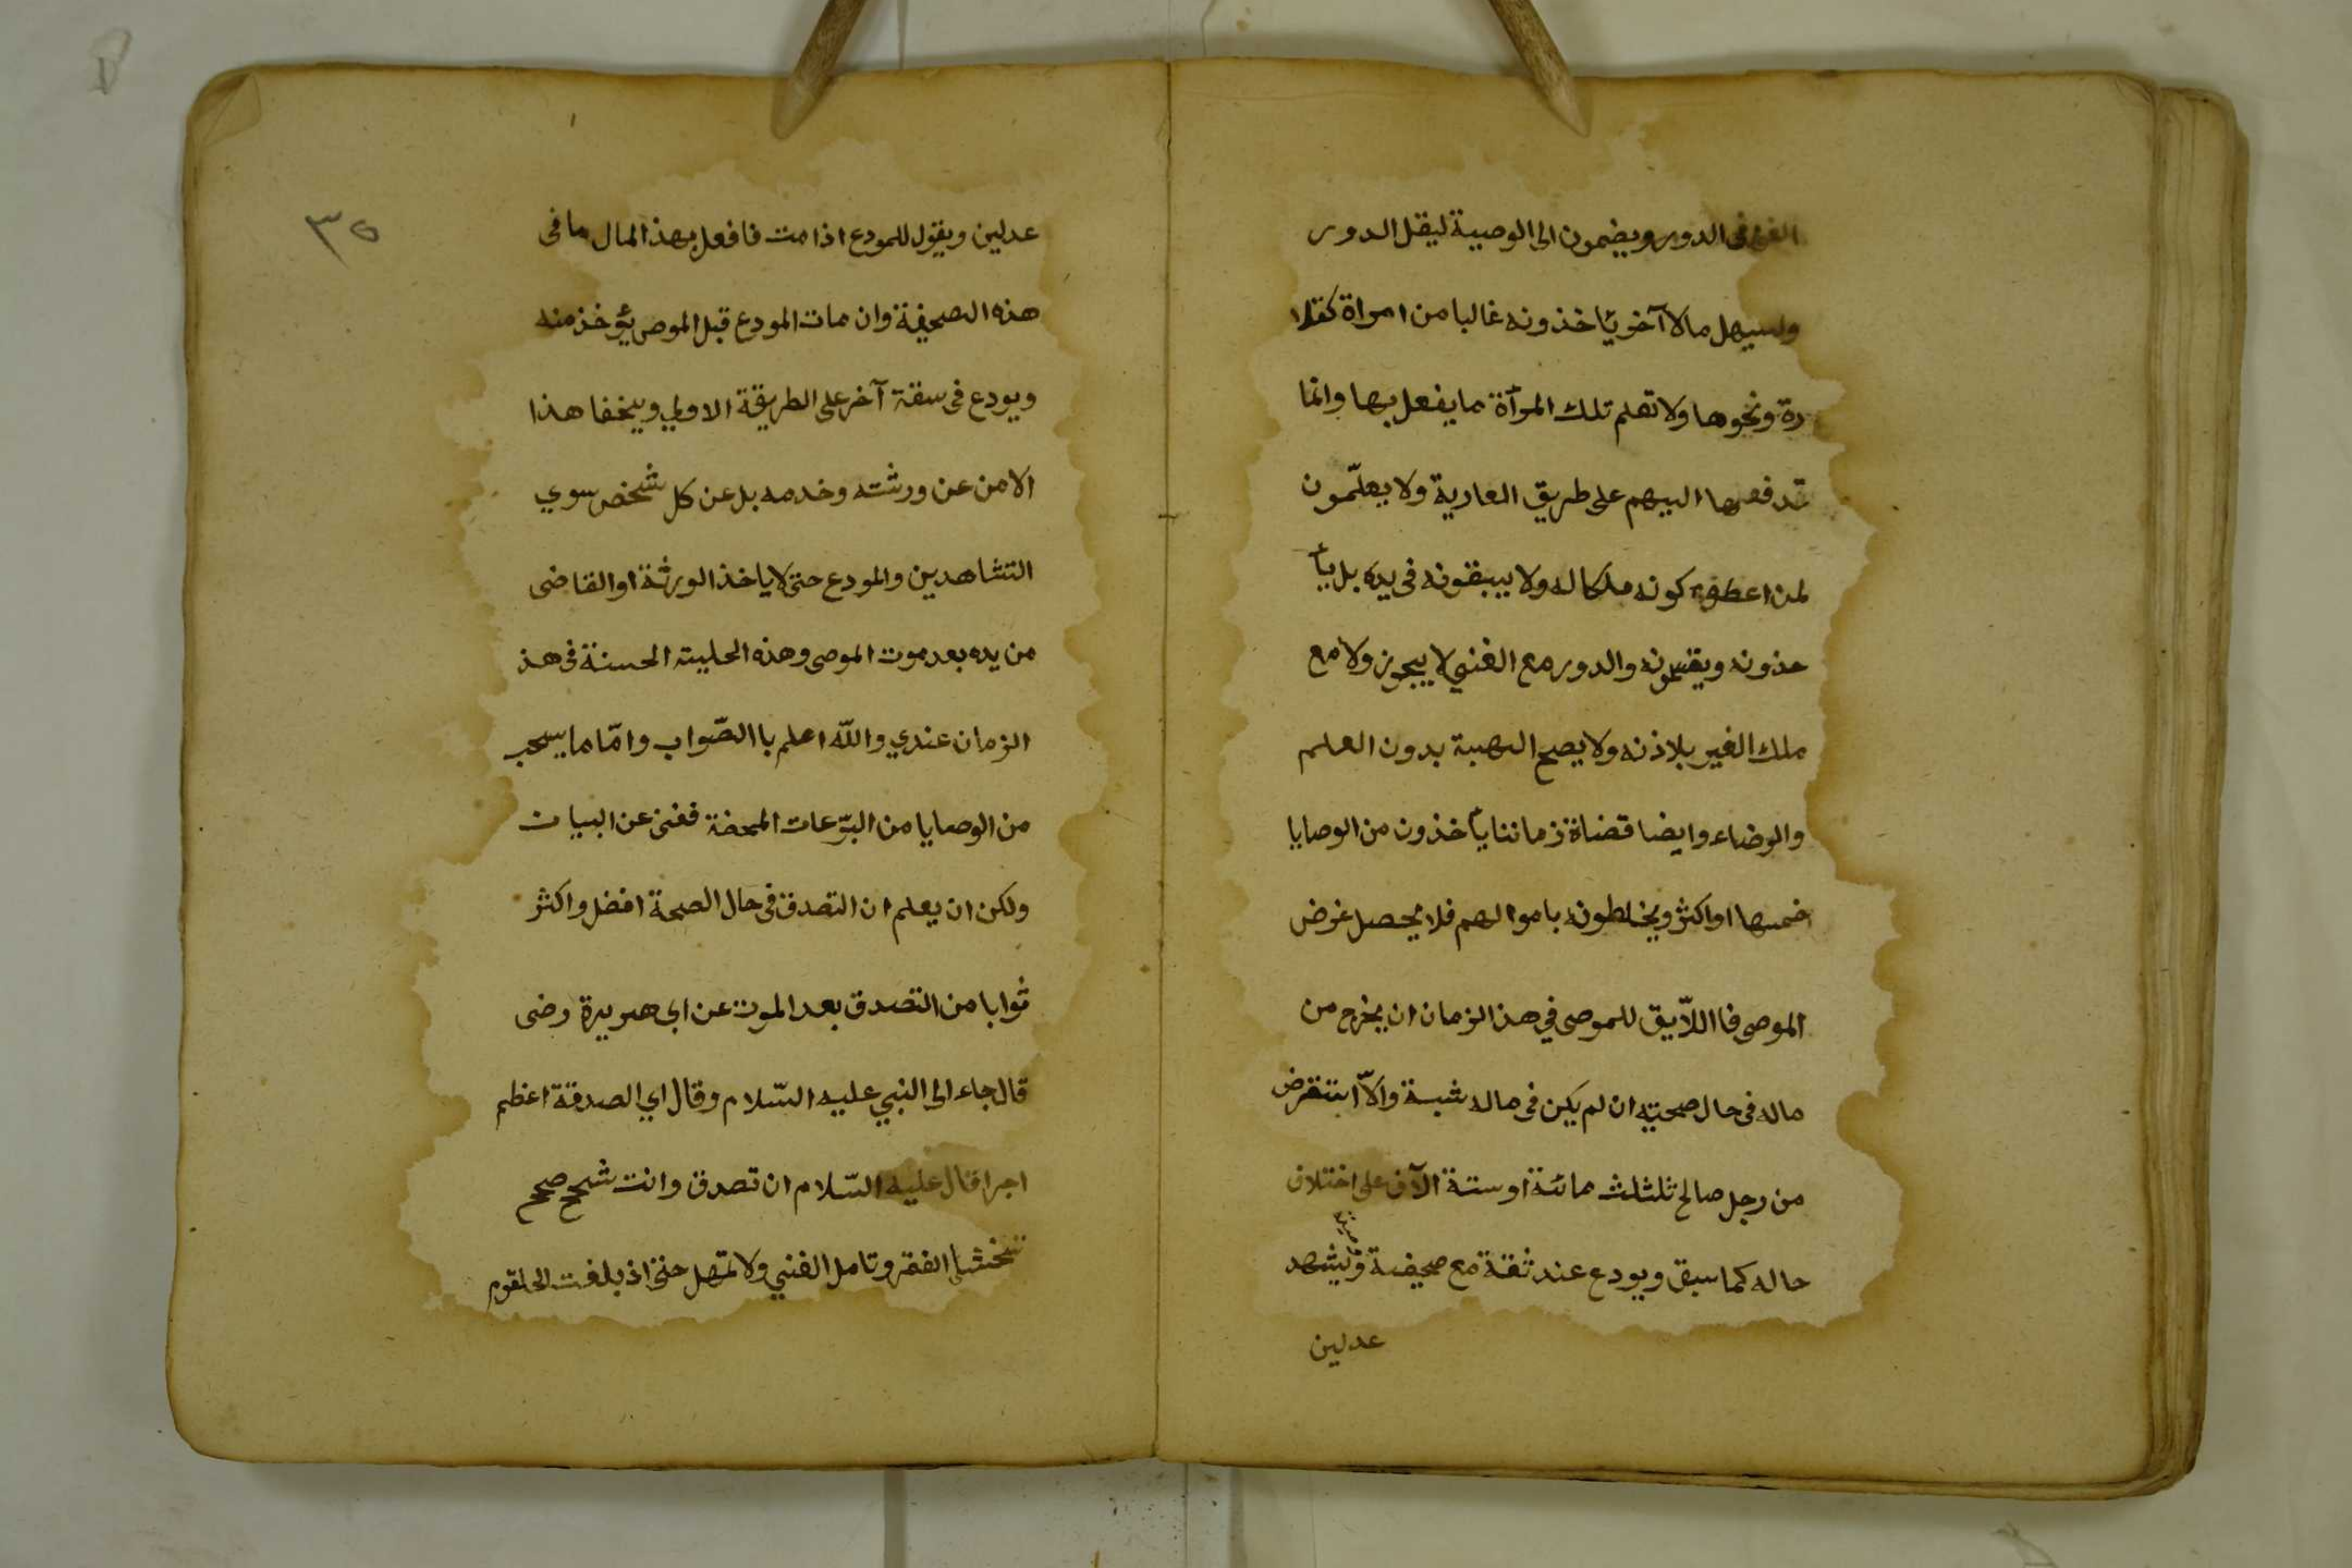 الغنى فى الدور ويضمون الى الوصية ليقل الدور
وليسهل مالا آخر يأخذونه غالبا من امراة كقلا
دة ونحوها ولا تعلم تلك المرأة ما يفعل بها وانما
تدفعها اليهم على طريق العارية ولا يعلّمون
لمن اعطوه كونه ملكا له ولا يبقونه فى يده بل يأ
خذونه ويقسمونه والدور مع الغني لا يجوز ولا مع
ملك الغير بلا ذنه ولا يصح الهبة بدون العلم
والرضاء وايضا قضاة زماننا يأخذون من الوصايا
خمسها او اكثر ويخلطونه باموالهم فلا يحصل غرض
الموصى فا اللاّيق للموصى في هذ الزمان ان يخرج من
ماله فى حال صحيته ان لم يكن فى ماله شبهة والاّ ابتقرض
من رجل صالح ثلثلث مائة او ستة الآف على اختلاف
حاله كما سبق ويودع عند ثقة مع صحيفة ويشهد
عدلين
٣٥
عدلين ويقول للمودع اذا مت فافعل بهذ المال ما فى
هذه الصحيفة وان مات المودع قبل الموصى يؤخذ منه
ويودع فى سقة آخر على الطريقة الاولي ويخفا هذا
الامن عن ورثته وخدمه بل عن كل شخص سوي
التشاهدين والمودع حتى لا ياخذ الورثة او القاضى
من يده بعد موت الموصى وهذه الحليته الحسنة فى هذ
الزمان عندي واللّه اعلم با الصّواب وامّا ما يسحب
من الوصايا من البرّعات المحضة فغنى عن البيان
ولكن ان يعلم ان التصدق فى حال الصحة افضل واكثر
ثوابا من التصدق بعد الموت عن ابى هريرة رضى
قال جاء الى النبي عليه السّلام وقال اي الصدقة اعظم
اجرا قال عليه السّلام ان تصدق وانت شحح صحح
تخشا الفقر وتامل الغني ولا تمهل حتى اذ بلغت الحلقوم